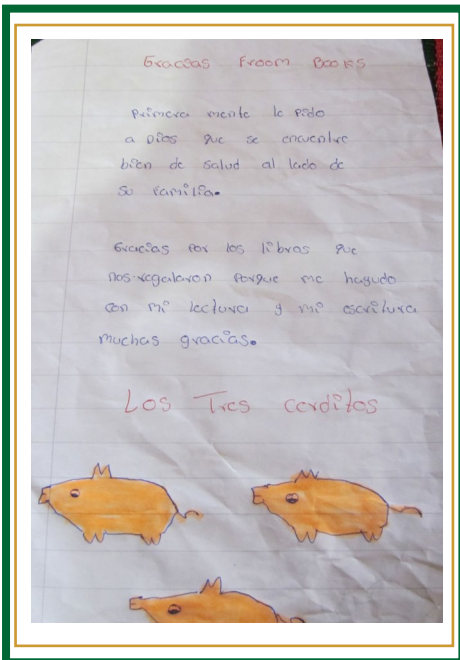 Gracias Froom Books
Primera mente le pido
a Dios que se encuentre
bien de salud al lado de
su familia.
Gracias por los libros que
nos regalaron porque me hayudo
con mi lectura y mi escritura
muchas gracias.
Los Tres cerditos